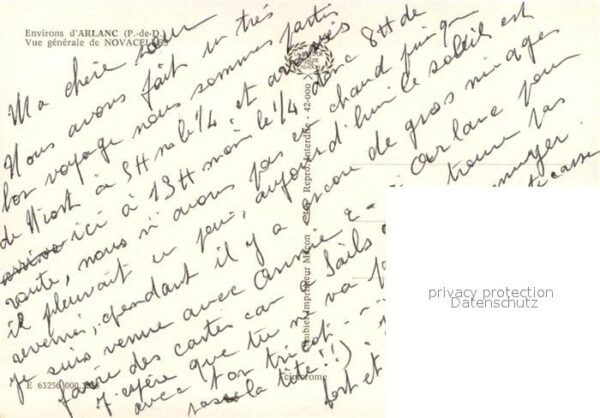 Environs d'ARLANC (P.-de-D.)
Vue générale de NOVACELLES
Ma chère sœur
Nous avons fait un très
bon voyage nous sommes partis
de Niort à 5H le 1/4 et arrivés
ici à 13H moins le 1/4 donc 8H de
route, nous n'avons pas eu chaud puisque
il pleuvait un peu, aujourd'hui le soleil est
revenu, cependant il y a encore de gros nuages
je suis venue avec Annie à Arlanc pour
faire des cartes car à Sails trouve pas
J'espère que tu ne va pas ennuyer
avec ton tricot te casse
la tête!!)
fort et
E 63256 000
Combier Imprimeur Macon
Repro. Interdite - 42-000
privacy protection
Datenschutz